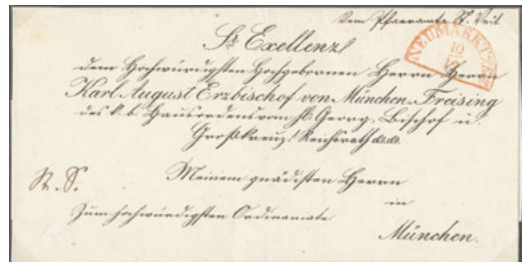 Vom Pfarramte St. Veit
NEUMARKT
10
VI
Sr Exellenz
dem Hochwürdigsten Hochgebornen Herrn Herrn
Karl August Erzbischof von München Freising
des k. b. Hausordens vom hl. Georg, Bischof u.
Großkreuz! Reichsrath &c.&c.
R. S.
Meinem gnädigsten Herrn
in
Zum hochwürdigsten Ordinariate
München.